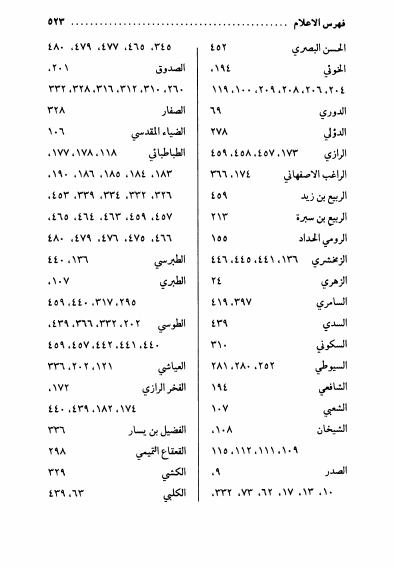 فهرس الاعلام ........................................ ٥٢٣
الحسن البصري ٤٥٢
الخوئي ١٩٤،
٢٠٤، ٢٠٦، ٢٠٨، ٢٠٩، ١٠٠، ١١٩
الدوري ٦٩
الدؤلي ٢٧٨
الرازي ١٧٣، ٤٥٧، ٤٥٨، ٤٥٩
الراغب الاصفهاني ١٧٤، ٣٦٦
الربيع بن زيد ٤٥٩
الربيع بن سبرة ٢١٣
الرومي الحداد ١٥٥
الزمخشري ١٣٦، ٤٤١، ٤٤٥، ٤٤٦
الزهري ٢٤
السامري ٣٩٧، ٤١٩
السدي ٤٣٩
السكوني ٣١٠
السيوطي ٢٥٢، ٢٨٠، ٢٨١
الشافعي ١٩٤
الشعبي ١٠٧
الشيخان ١٠٨،
١٠٩، ١١١، ١١٢، ١١٥
الصدر ٩،
١٠، ١٣، ١٧، ٦٢، ٧٣، ٣٣٢،
٣٤٥، ٤٦٥، ٤٧٧، ٤٧٩، ٤٨٠
الصدوق ٢٠١،
٢٦٠، ٣١٠، ٣١٢، ٣١٦، ٣٢٨، ٣٣٢
الصفار ٣٢٨
الضياء المقدسي ١٠٦
الطباطبائي ١١٨، ١٧٨، ١٧٧،
١٨٣، ١٨٤، ١٨٥، ١٨٦، ١٩٠،
٣٢٦، ٣٣٢، ٣٣٤، ٣٣٩، ٤٥٣،
٤٥٧، ٤٥٩، ٤٦٣، ٤٦٤، ٤٦٥،
٤٦٦، ٤٧٥، ٤٧٦، ٤٧٩، ٤٨٠
الطبرسي ١٣٦، ٤٤٠
الطبري ١٠٧،
٢٩٥، ٣١٧، ٤٤٠، ٤٥٩
الطوسي ٢٠٢، ٣٣٢، ٣٦٦، ٤٣٩،
٤٤٠، ٤٤١، ٤٤٢، ٤٥٧، ٤٥٩
العياشي ١٢١، ٢٠٢، ٣٣٦
الفخر الرازي ١٧٢،
١٧٤، ١٨٢، ٤٣٩، ٤٤٠
الفضيل بن يسار ٣٣٦
القعقاع التميمي ٢٩٨
الكشي ٣٢٩
الكلبي ٦٣، ٤٣٩